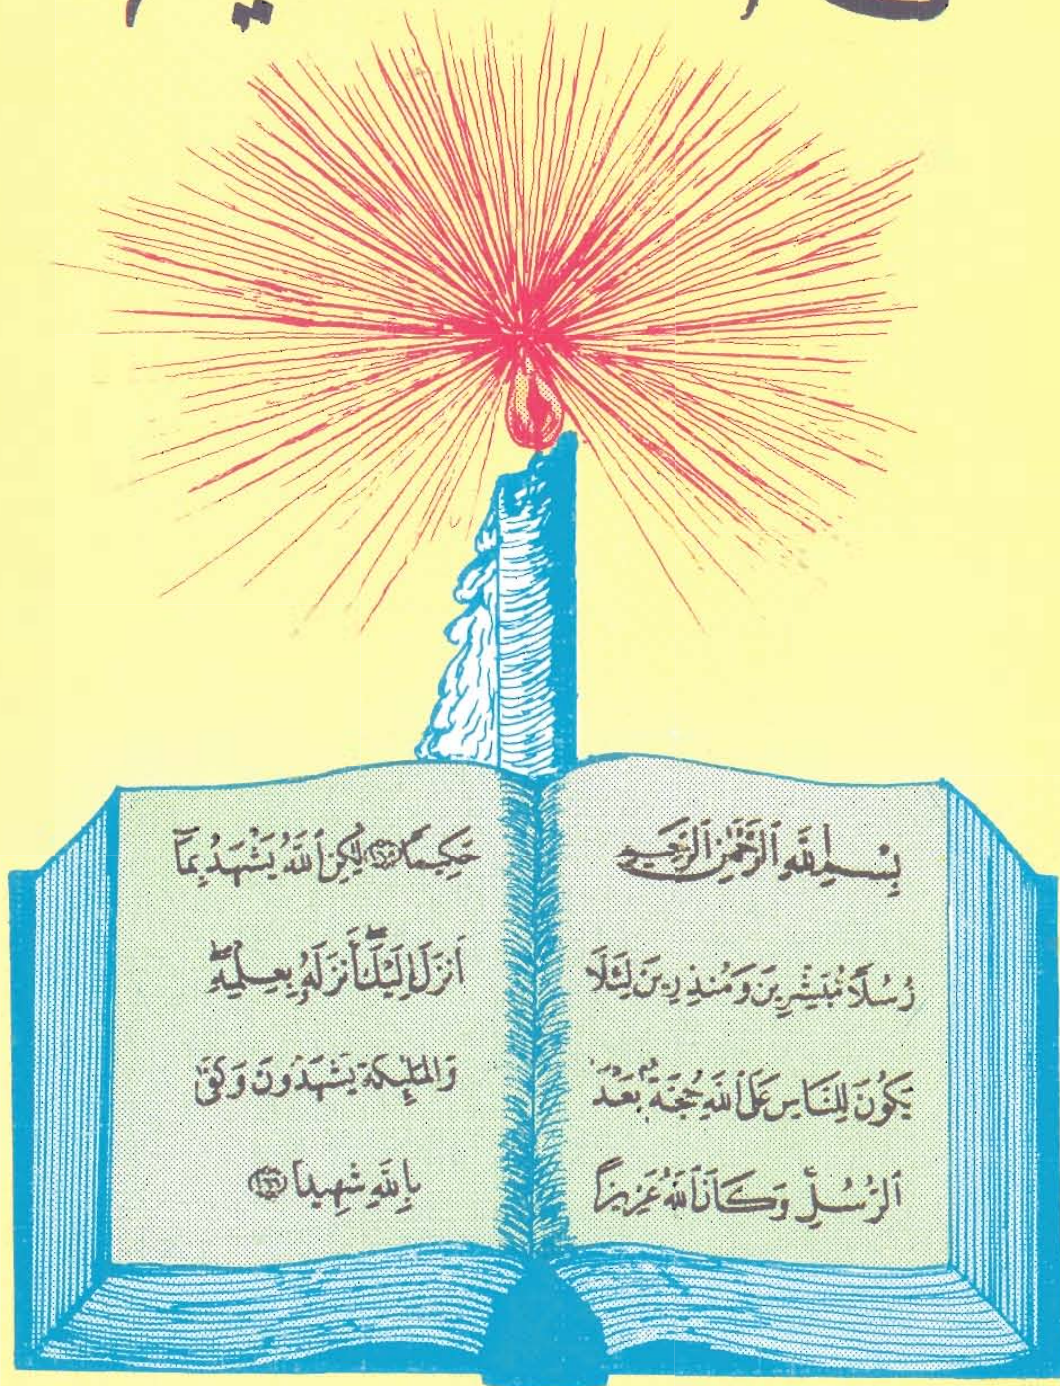 بِسْمِ اللَّهِ الرَّحْمَٰنِ الرَّحِيمِ
رُسُلًا مُّبَشِّرِينَ وَمُنذِرِينَ لِئَلَّا
يَكُونَ لِلنَّاسِ عَلَى اللَّهِ حُجَّةٌ بَعْدَ
الرُّسُلِ وَكَانَ اللَّهُ عَزِيزًا
حَكِيمًا ١٦٥ لَّٰكِنِ اللَّهُ يَشْهَدُ بِمَا
أَنزَلَ إِلَيْكَ أَنزَلَهُ بِعِلْمِهِ
وَالْمَلَٰئِكَةُ يَشْهَدُونَ وَكَفَىٰ
بِاللَّهِ شَهِيدًا ١٦٦